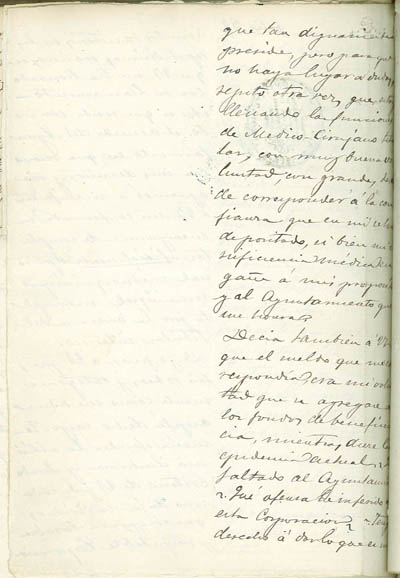 que tan dignamente
preside, pero para que
no haya lugar a dudas,
repito otra vez, que esta
llenando las funciones
de Medico-Cirujano titu
lar, con muy buena vo
luntad, con grandes
de corresponder á la con
fianza que en mi se ha
depositado, si bien mi in
suficiencia médica en
gañe á mis propo
y al Ayuntamiento que
me honra?
Decia tambien á V.
que el sueldo que me co
rrespondia era mi volun
tad que se agregase á
los fondos de beneficen
cia, mientras dure la
epidemia actual,
faltado al Ayuntam
¿Qué ofensa he inferido á
esta Corporacion?
deseolo á darlo que